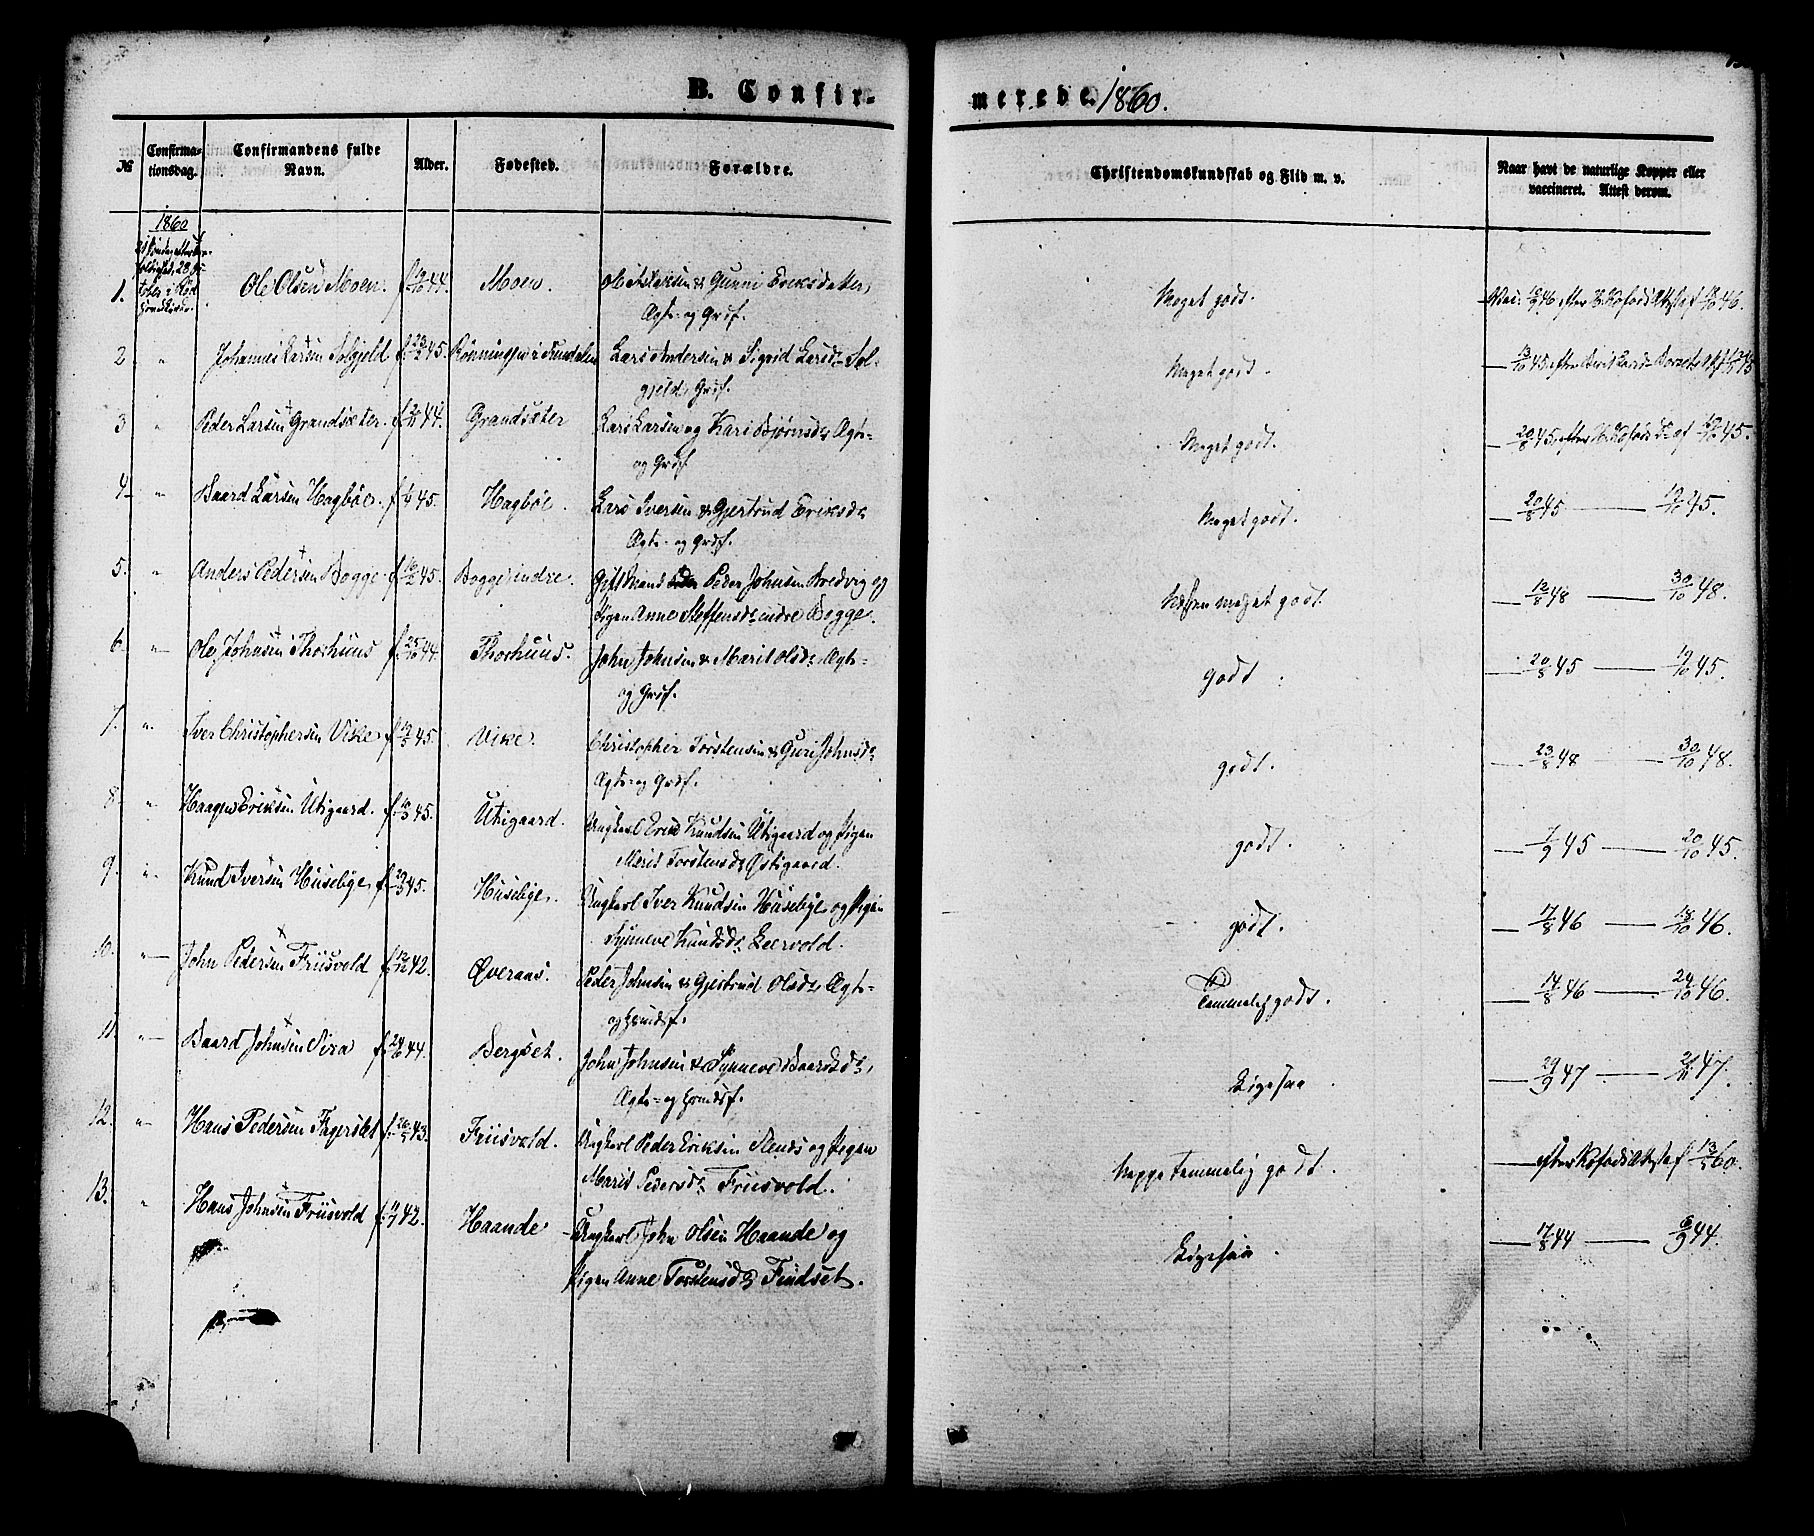 B. Confir-
merede 1860.
№ Confirma-tionsdag. Confirmandens fulde Navn. Alder. Fødested. Forældre. Christendomskundskab og Flid m. v. Naar havt de naturlige Kopper eller vaccineret. Attest derom.
1860
1. Ole Olsen Moen. f. 44. Moen. Ole & Gunni Eriksdatter,
Ægte- og Grdf. Meget godt. Vac. 46 efter Attest af 46.
2 " Johannes Larsen Solgjeld f. 45. Rønningen i Sundalen Lars Andersen & Sigrid Larsd. Sol-
gjeld, Grdf. Meget godt. 13/10 45, efter
3 " Peder Larsen Grandsæter. f. 44. Grandsæter Lars Larsen og Kari Bjørnsd. Ægte-
og Grdf. Meget godt. 20/8 45, efter 19/10 45.
4 " Baard Larsen Hagbøe. f. 45. Hagbøe Lars Iversen & Gjertrud Eriksd.
Ægte- og Grdf. Meget godt. — 20/8 45 — 19/10 45.
5. " Anders Pedersen Bogge f. 45. Bogge indre. Gift Mand Peder Johnsen Bredvig og
Pigen Anne Steffensd. indre Bogge. Næsten meget godt. — 12/8 48 — 30/10 48.
6. " Ole Johnsen Thorhuus f. 25/10 44. Thorhuus. John Johnsen & Marit Olsd. Ægte-
og Grdf. godt. — 20/8 45 — 19/10 45.
7. " Iver Christophersen Vike f. 45. Vike. Christopher Torstensen & Guri Johnsd.
Ægte- og Grdf. godt. — 23/8 48 — 30/10 48.
8. " Haagen Eriksen Utigaard. f. 45. Utigaard. Ungkarl Erik Knudsen Utigaard og Pigen
Marit Torstensd. Østigaard. godt. — 7/9 45 — 20/10 45.
9. " Knud Iversen Husebye f. 45. Husebye. Ungkarl Iver Knudsen Husebye og Pigen
Synneve Knudsd. Leervold. godt. — 17/8 46 — 18/10 46.
10. " John Pedersen Friisvold f. 42. Øveraas. Peder Johnsen & Gjertrud Olsd. Ægte-
og Grundsf. Temmelig godt. — 14/8 46 — 24/10 46.
11. " Baard Johnsen Vira f. 44. Bergset. John Johnsen & Synneve Baardsd.,
Ægte- og Grundsf. Ligesaa. — 29/9 47 — 47.
12. " Hans Pedersen Fagerslet f. 43. Friisvold. Ungkarl Peder Eriksen og Pigen
Marit Pedersd. Friisvold. Neppe temmelig godt. — efter Attest af 60.
13. " Hans Johnsen Friisvold f. 42. Haande Ungkarl John Olsen Haande og
Pigen Anne Torstensd. Findset. Ligesaa. — 17/8 44 — 44.